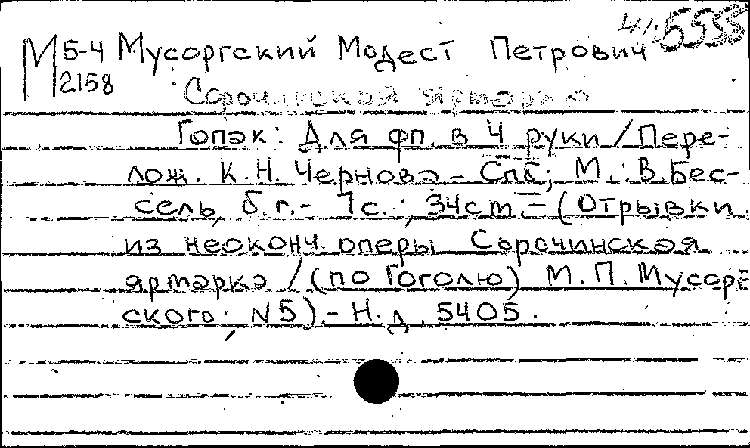 М 5-4 Мусоргский Модест Петрович
2158
Сорочинская ярмарка
Гопак: Для фп. в 4 руки / Пере-
лож. К.Н. Чернова – Спб; М.: В.Бес-
сель, б.г. – 7с.; 34cm – (Отрывки
из неоконч. оперы Сорочинская
ярмарка / (по Гоголю) М.П. Мусорг
ского; N5). – Н.д. 5405.